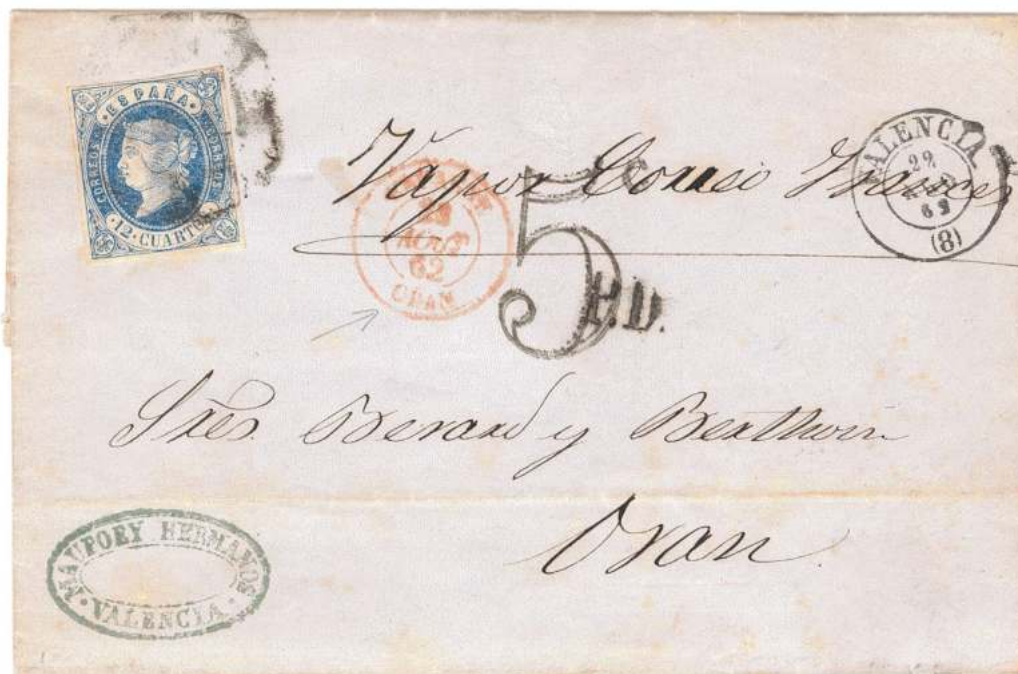 · ESPAÑA ·
CORREOS
CORREOS
· 12 · CUARTOS
Vapor Correo Frances
VALENCIA
22
62
(8)
AOUT
62
ORAN
5
P.D.
Sres. Berard y
Oran
MAUPOEY HERMANOS
· VALENCIA ·